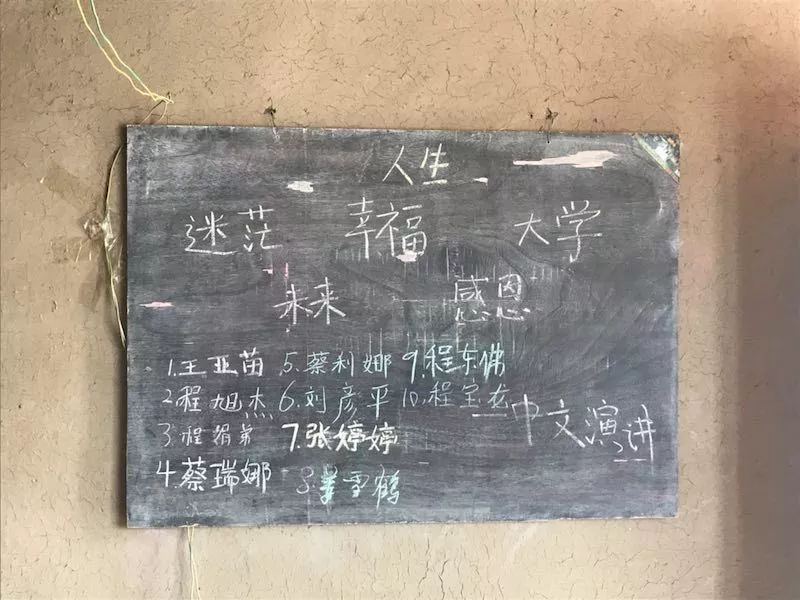 人生
迷茫 幸福 大学
未来 感恩
1.王亚苗 5.蔡利娜 9.程东佛
2.程旭杰 6.刘彦平 10.程宝龙
3.程 弟 7.张婷婷
中文演讲
4.蔡瑞娜 8. 雪鹤